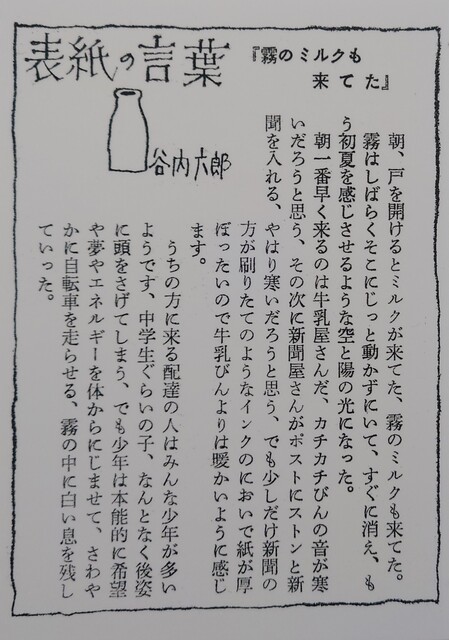 表紙の言葉
『霧のミルクも
来てた』
谷内六郎
朝、戸を開けるとミルクが来てた、霧のミルクも来てた。
霧はしばらくそこにじっと動かずにいて、すぐに消え、も
う初夏を感じさせるような空と陽の光になった。
朝一番早く来るのは牛乳屋さんだ、カチカチびんの音が寒
いだろうと思う、その次に新聞屋さんがポストにストンと新
聞を入れる、やはり寒いだろうと思う、でも少しだけ新聞の
方が刷りたてのようなインクのにおいで紙が厚
ぼったいので牛乳びんよりは暖かいように感じ
ます。
うちの方に来る配達の人はみんな少年が多い
ようです、中学生ぐらいの子、なんとなく後姿
に頭をさげてしまう、でも少年は本能的に希望
や夢やエネルギーを体からにじませて、さわや
かに自転車を走らせる、霧の中に白い息を残し
ていった。